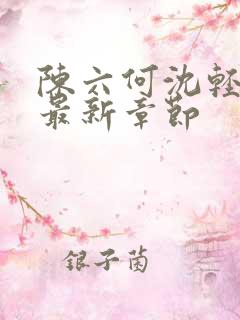 陳六何沈輕
最新章節
銀子菌